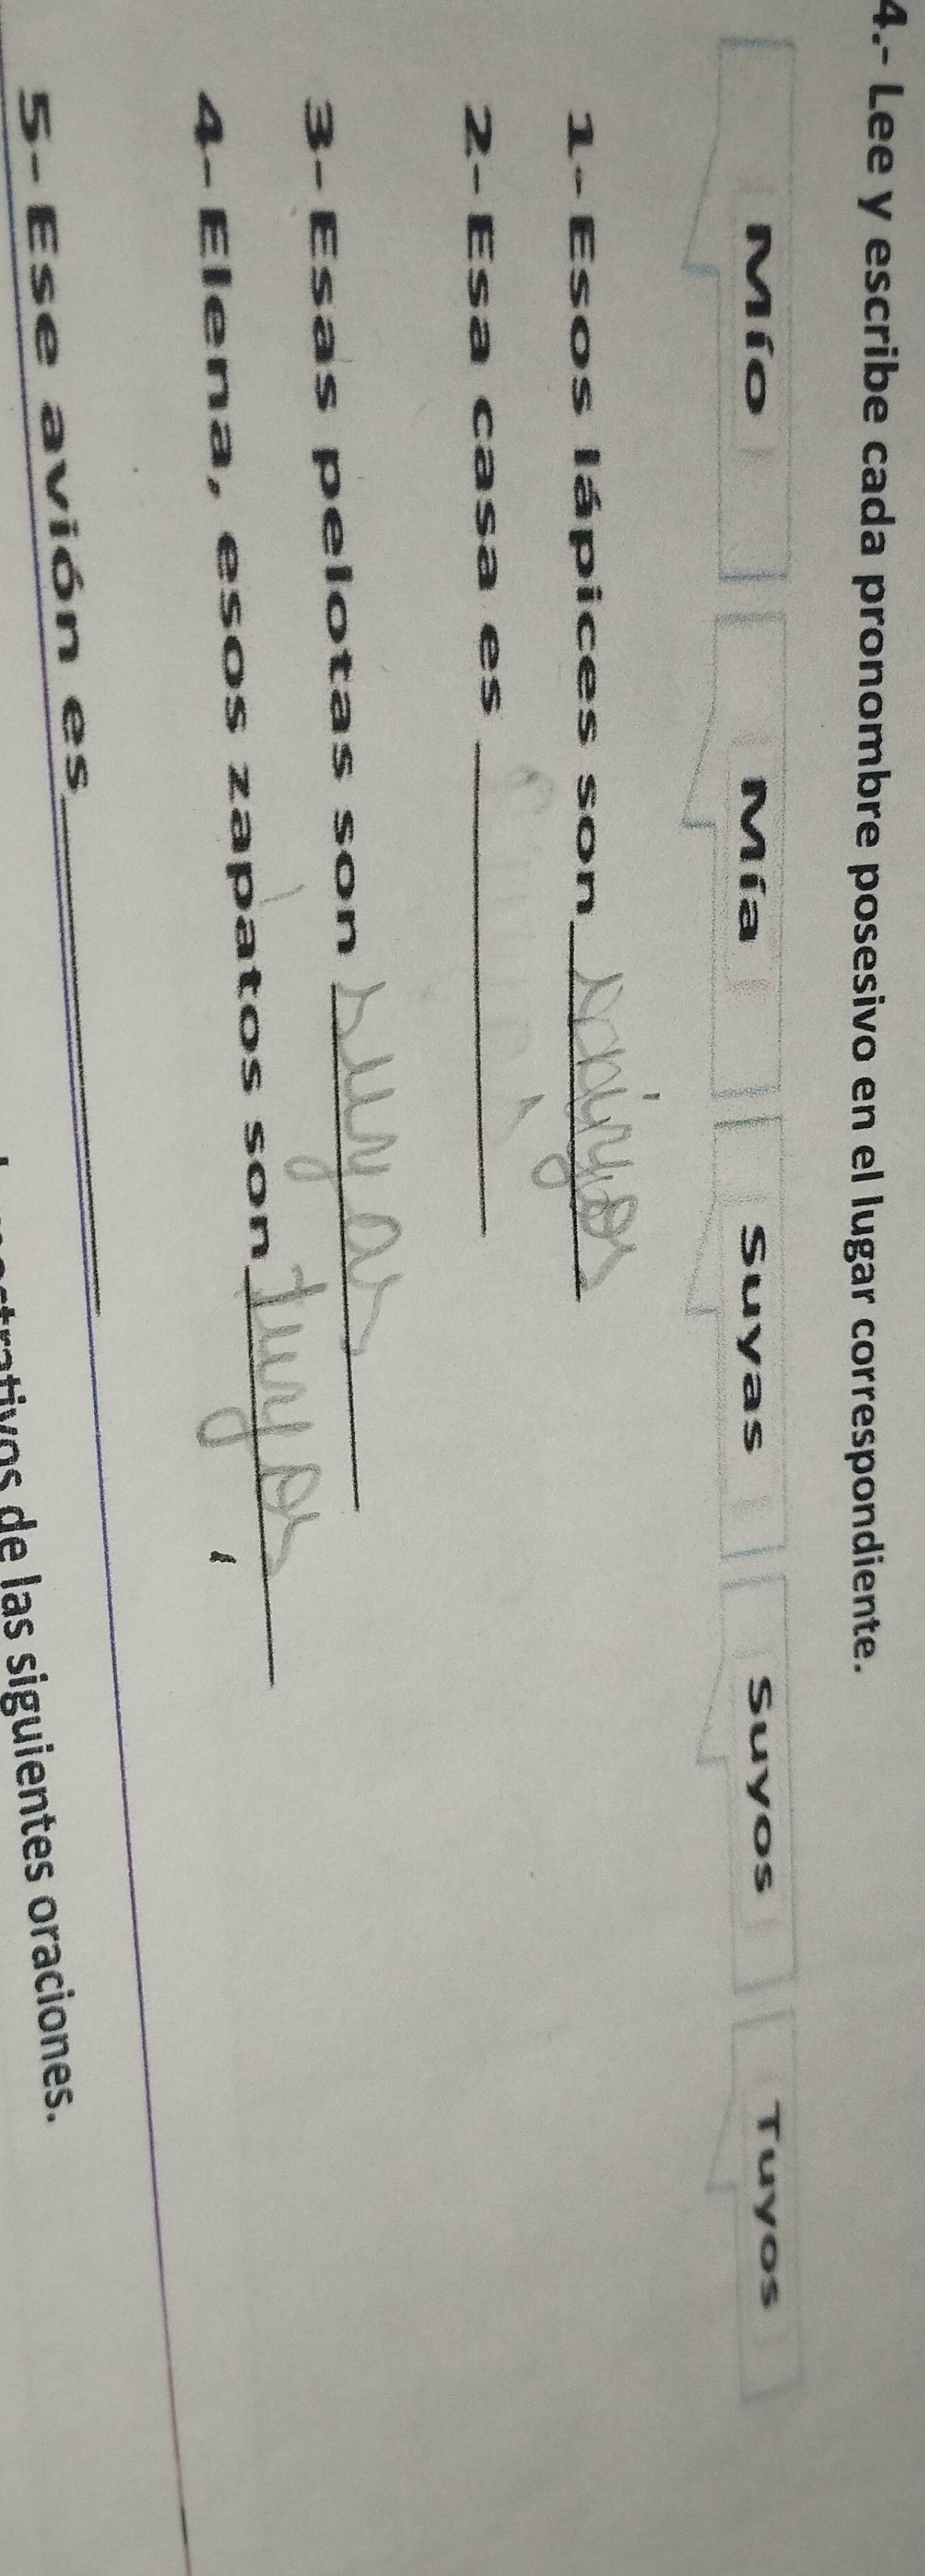 4.- Lee y escribe cada pronombre posesivo en el lugar correspondiente.
Mío Mía Suyas Suyos Tuyos
1-Esos lápices son
2-Esa casa es
3-Esas pelotas son suyas
4-Elena, esos zapatos son tuyos
5-Ese avión es
de las siguientes oraciones.